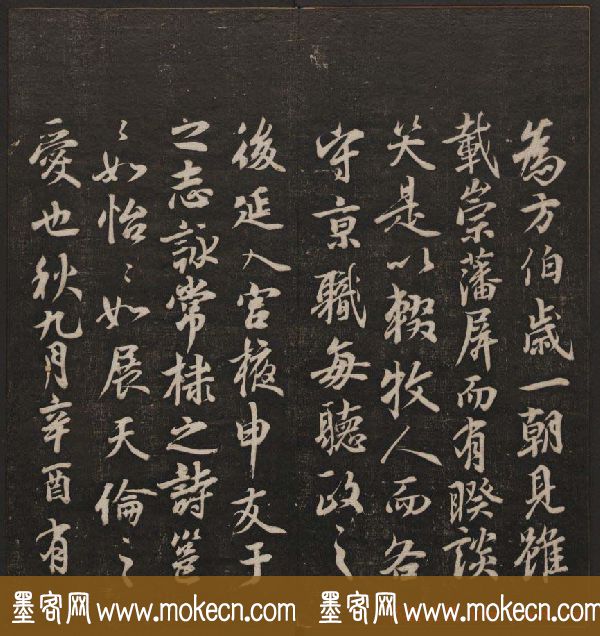 為方伯歲一朝見雖
載崇藩屏而有睽談
笑是以輟牧人而各
守京職每聽政之
後延入宮掖申友于
之志詠常棣之詩邕
邕如怡怡如展天倫之
愛也秋九月辛酉有
墨客网 www.mokecn.com 墨客网 www.mokecn.com